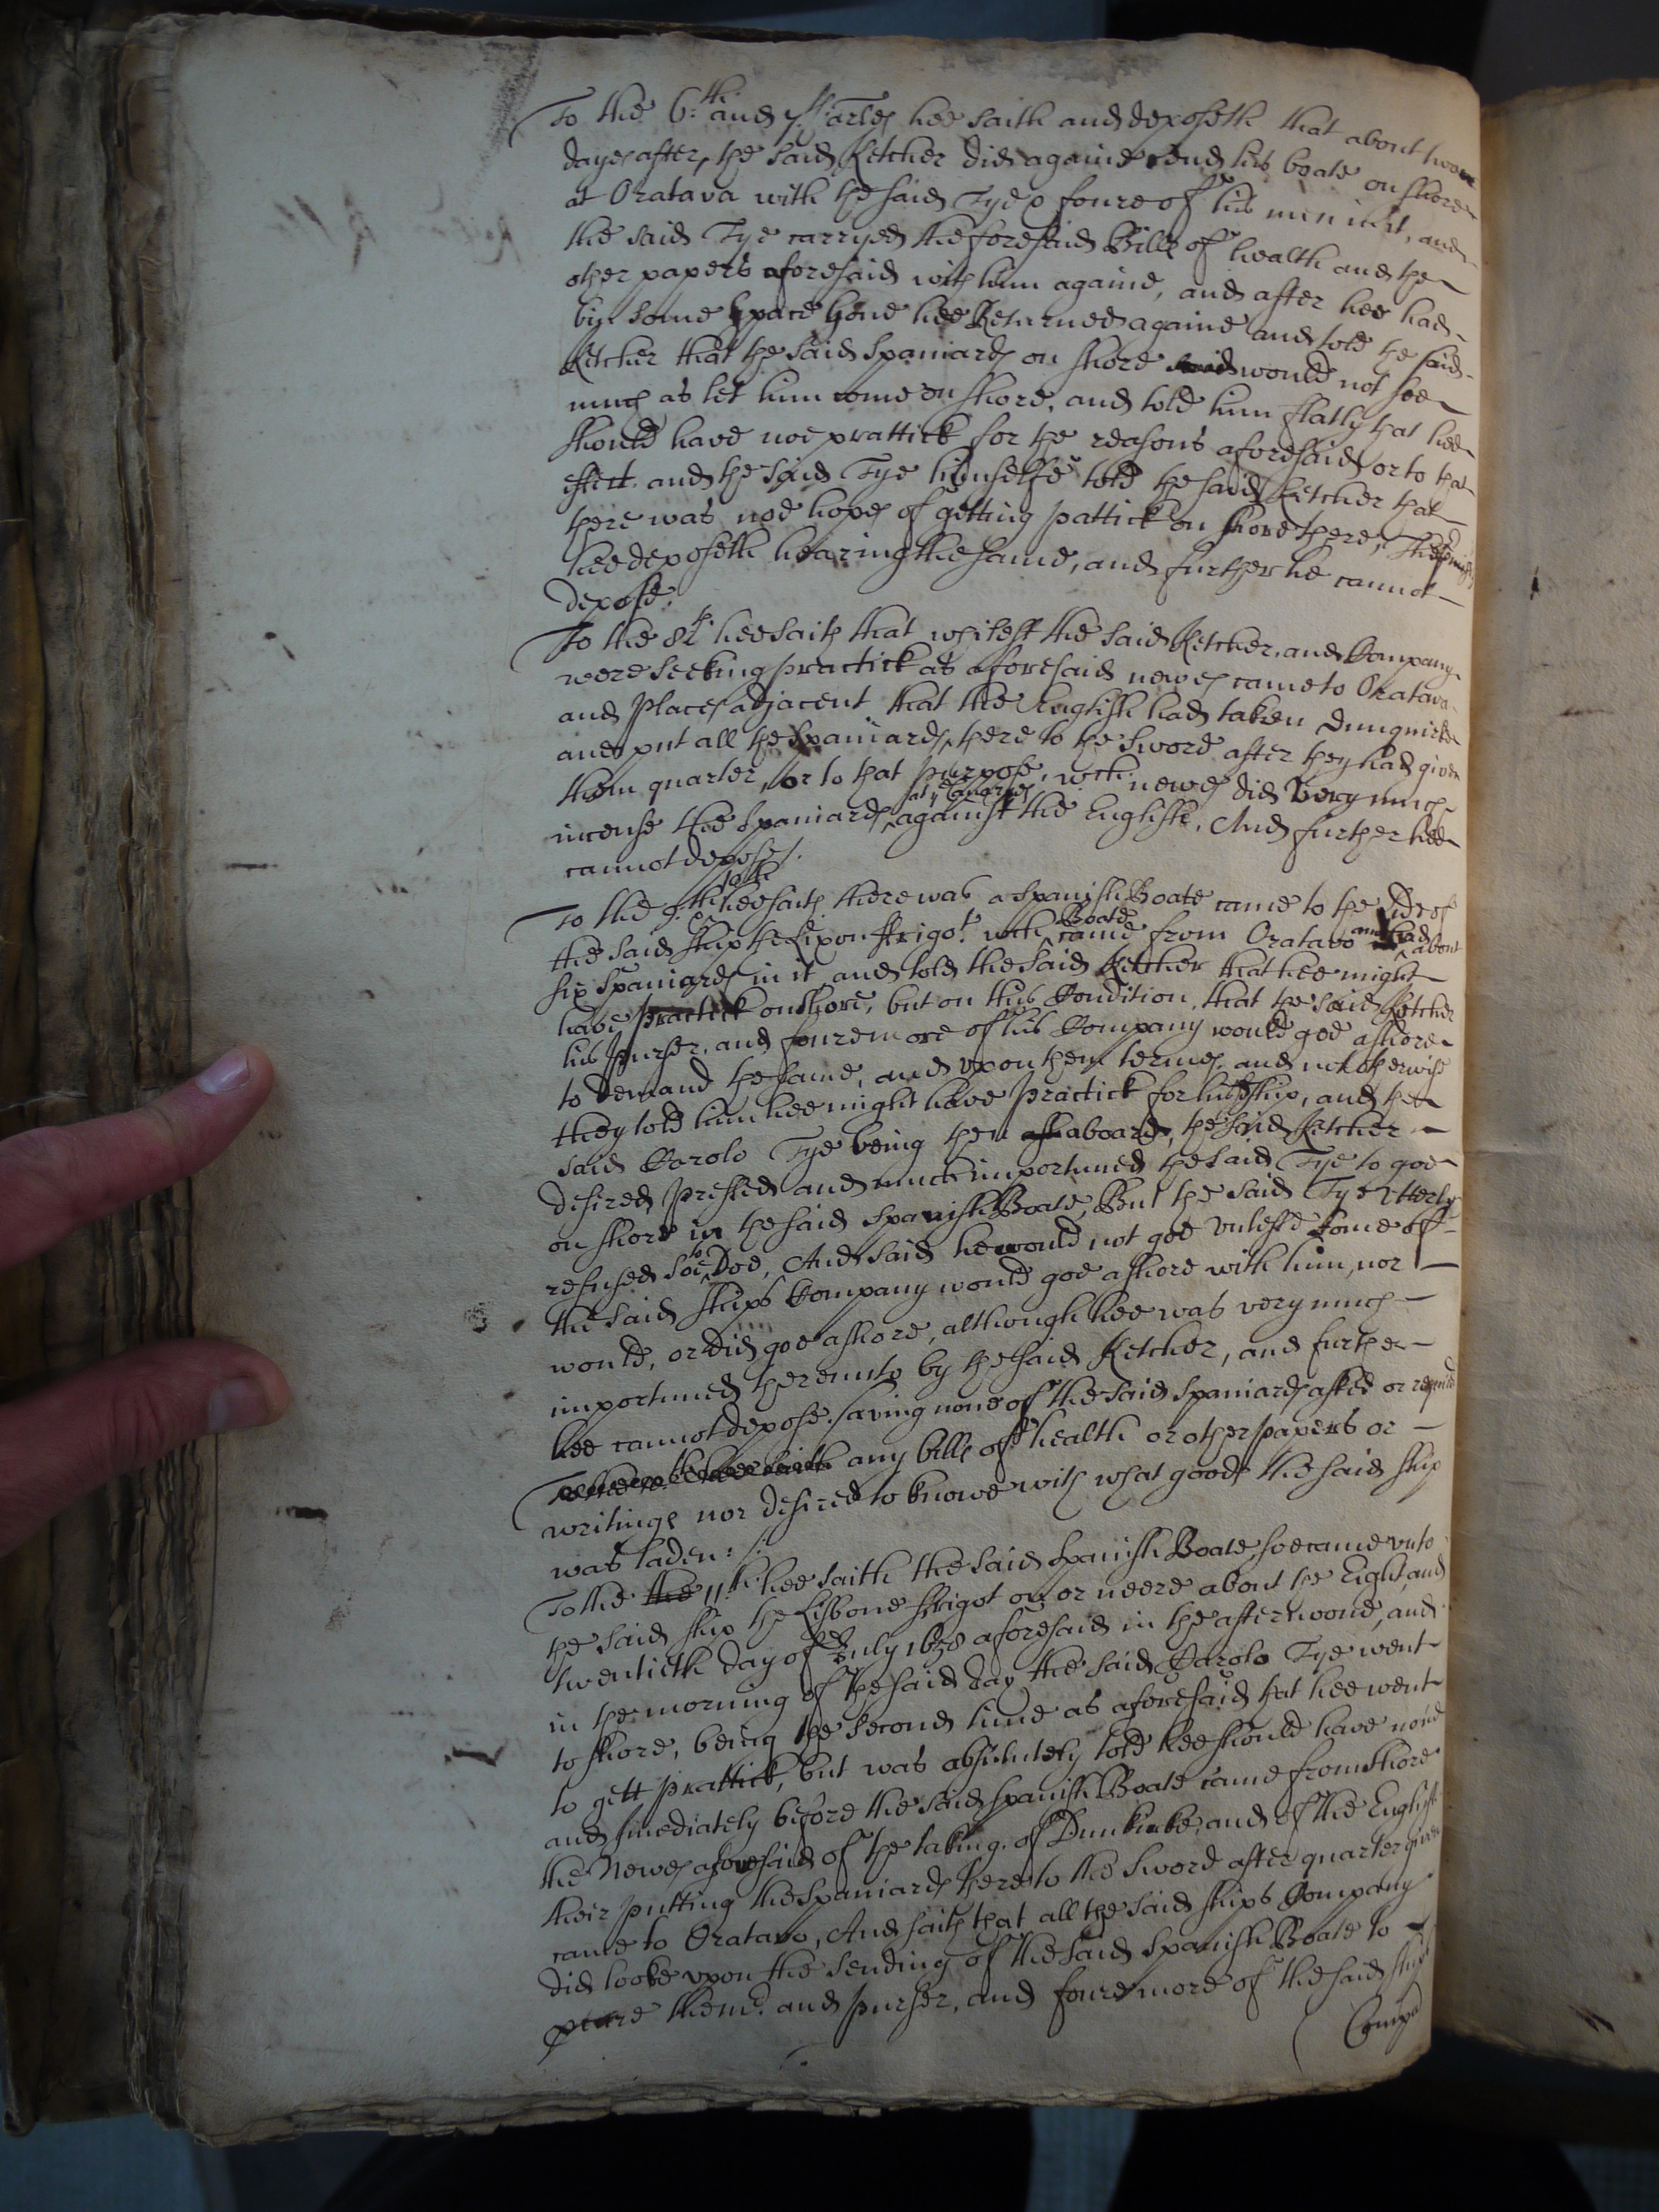 To the 6:th and 7th arles hee saith and deposeth that about two
dayes after, the said Ketcher did againe send his boate on shore
at Oratava with the said Tye & foure of his men in it, and
the said Tye carryed the foresaid Bills of health and the
other papers aforesaid with him againe, and after hee had
bin some space gone hee Returned againe and told the said
Ketcher that the said Spaniards on shore said would not soe
much as let him come on shore, and told him flatly that hee
should have noe prattick for the reasons aforesaid or to that
effect. and the said Tye himselfe told the said Ketcher that
there was noe hopes of getting pattick on shore there, This
hee deposeth hearing the same, and further he cannot
depose.
To the 8th hee saith that whilest the said Ketcher, and Company
were seeking practick as aforesaid newes came to Oratava
and Places adjacent that the English had taken Dunquirke
and put all the Spaniards there to the sword after they had given
them quarter, or to that purpose, wch newes did very much
incense the Spaniards at ye Canaries against the English, And further hee
cannot depose.
To the 9th 10th hee saith there was a Spanish Boate came to the side of
the said ship the Lixbon ffrigot wch Boate came from Oratavo and had about
six Spaniards in it, and told the said Ketcher that hee might
have practick on shore, but on this Condition, that the said Ketcher
his purser, and foure more of his Company would goe ashore
to demand the same, and upon them termes, and not otherwise
they told him hee might have practick for his ship, and the
said Carolo Tye being then aboard, the said Ketcher
desired pressed and much importuned the said Tye to goe
on shore in the said Spanish Boate, But the said Tye utterly
refused soe to Doe, And said he would not goe unlesse some of
the said ships Company would goe ashore with him, nor
would, or did goe ashore, although hee was very much
importuned thereunto by the said Ketcher, and further
hee cannot depose. saving none of the said Spaniards asked or required
any bills of health or other papers or
writings nor desired to knowe with what goods the said ship
was laden:/.
To the the 11th hee saith the said Spanish Boate soe came unto
the said ship the Lisbone ffrigot on or neere about the Eight and
twentieth day of July 1658 aforesaid in the afternoone, and
in the morning of the said day the said Carolo Tye went
to shore, being the second time as aforesaid that hee went
to gett prattick, but was absolutely told hee should have none
and Imediately before the said Spanish Boate came from shore
the Newes aforesaid of the taking of Dunkirke, and of the English
their putting the Spaniards there to the sword after quarter given
came to Oratavo, And saith that all the said ships Company
did looke upon the sending of the said Spanish Boate to
and purser, and foure more of the said ships
Compa